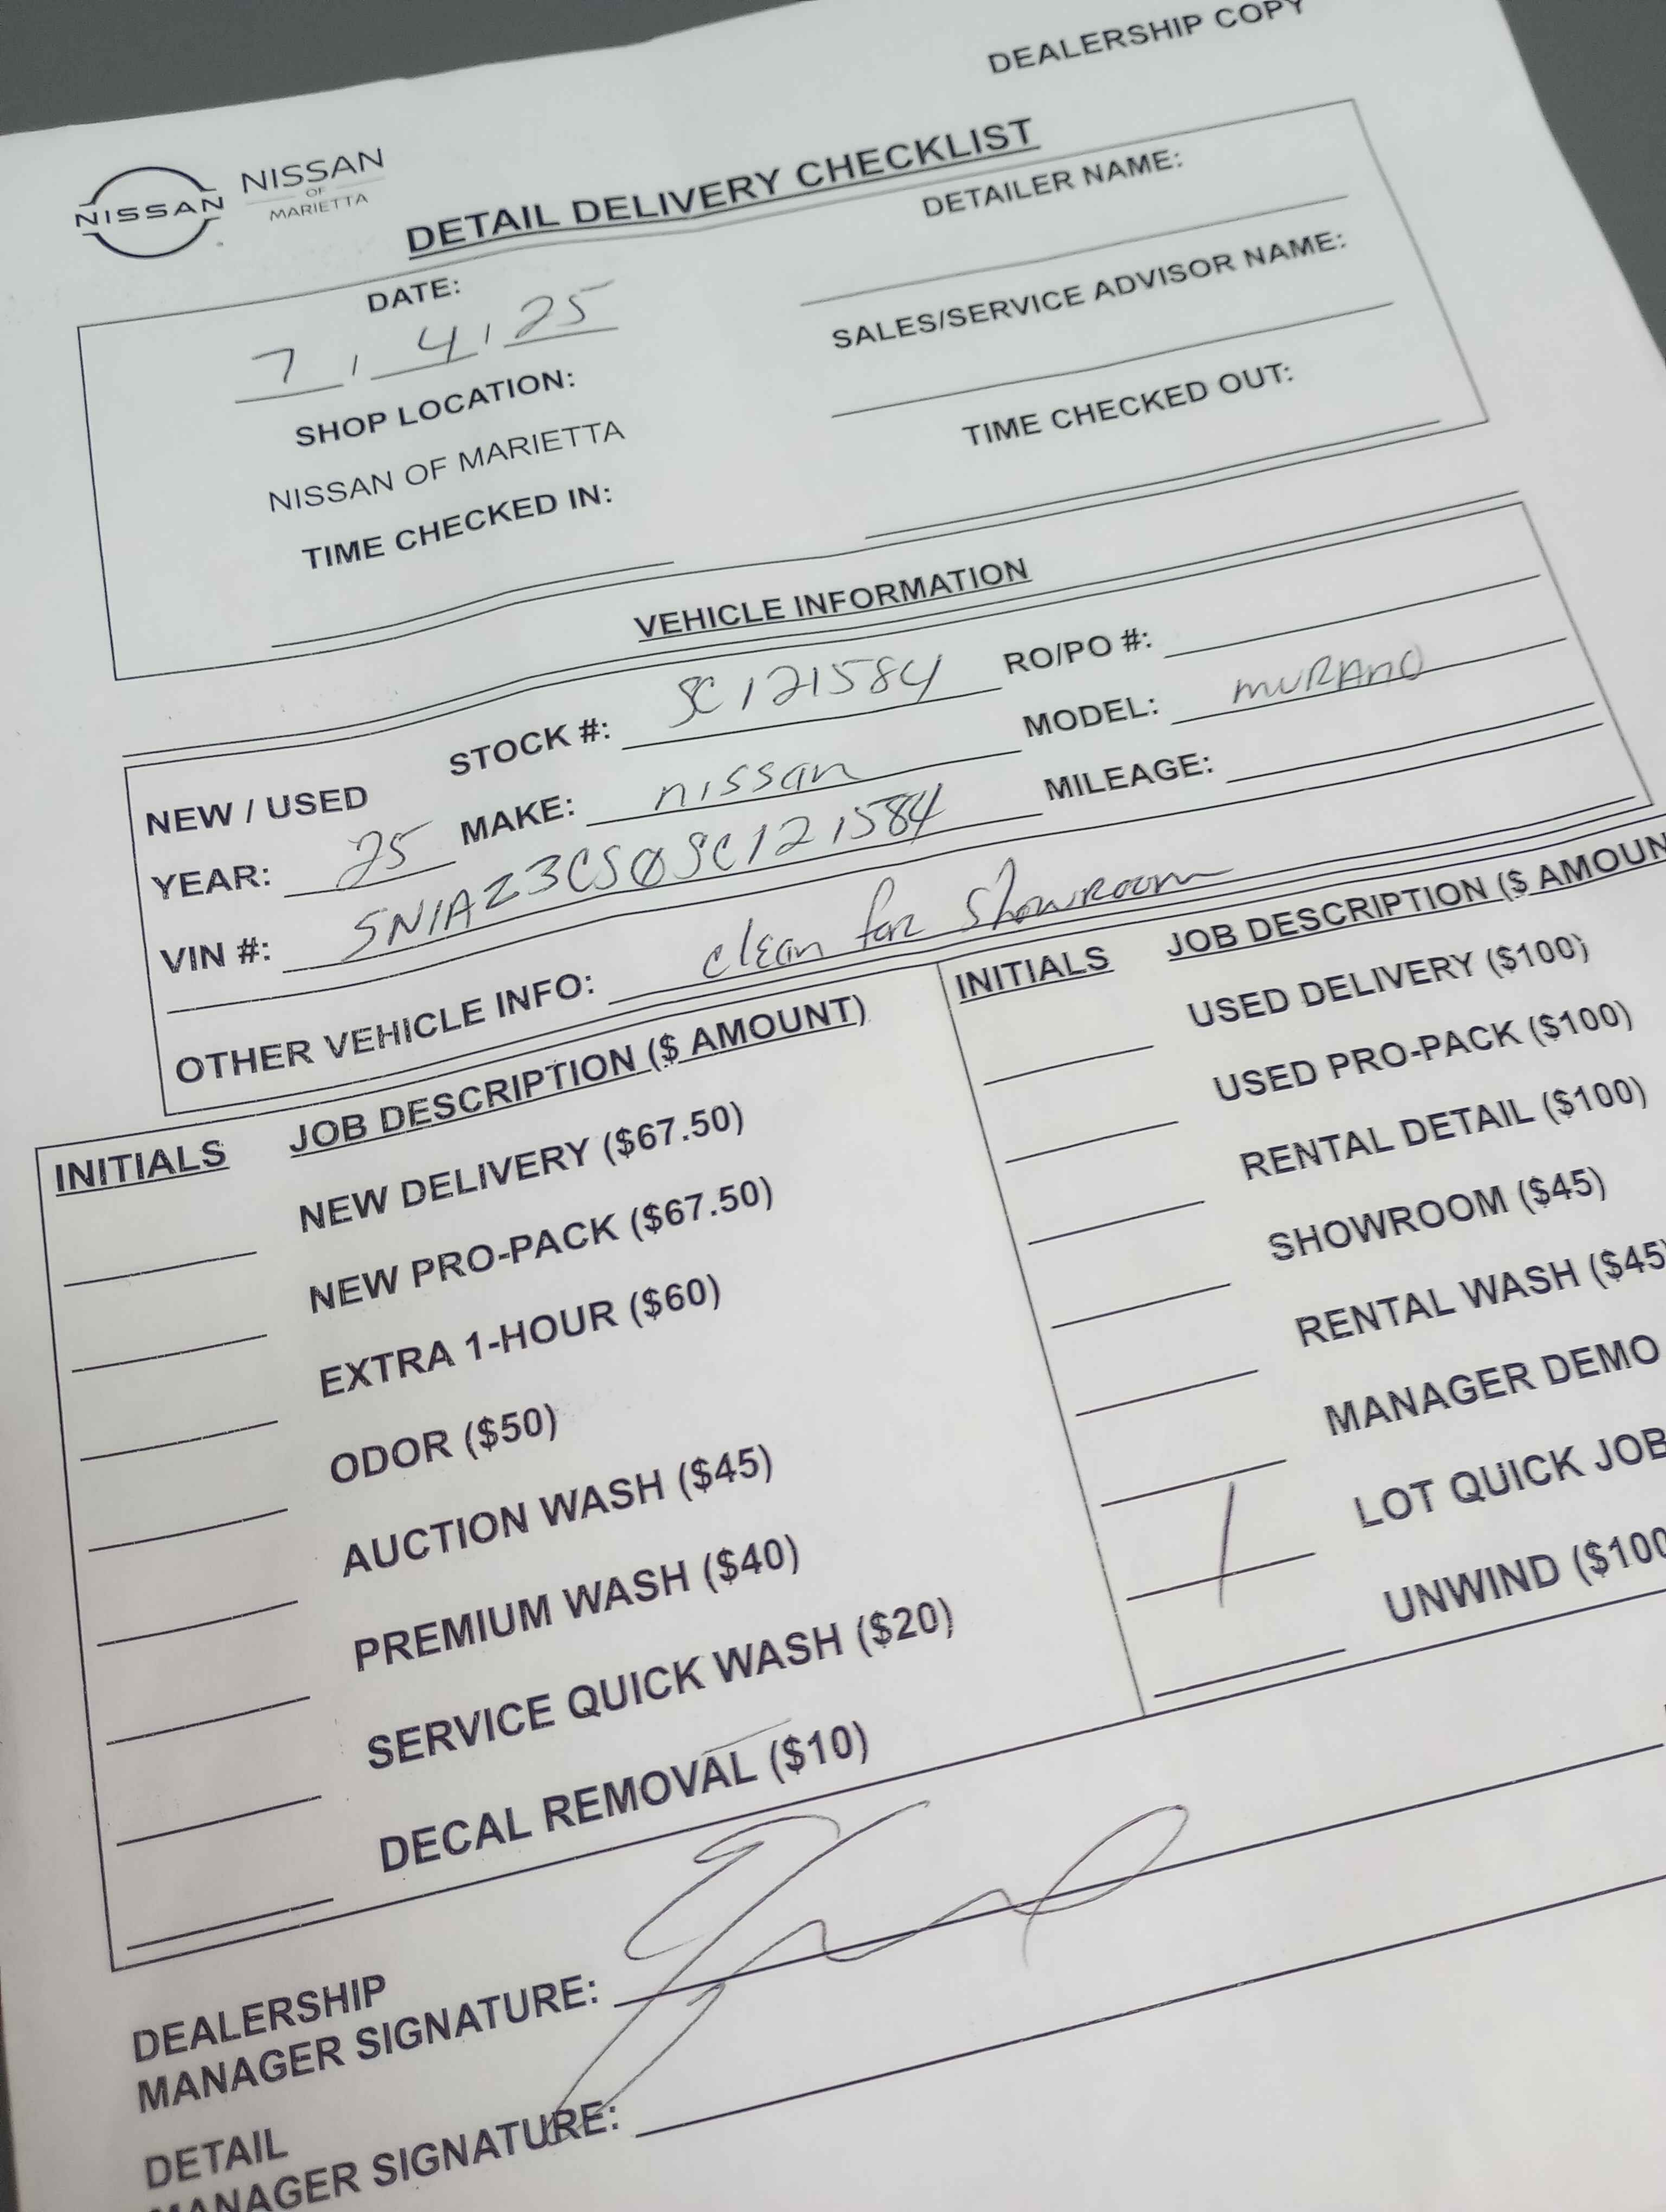 DEALERSHIP COPY
NISSAN
NISSAN
OF
MARIETTA
DETAIL DELIVERY CHECKLIST
DATE:
7 / 4 / 25
SHOP LOCATION:
NISSAN OF MARIETTA
TIME CHECKED IN:
DETAILER NAME:
SALES/SERVICE ADVISOR NAME:
TIME CHECKED OUT:
VEHICLE INFORMATION
NEW / USED STOCK #: SC121584 RO/PO #:
YEAR: 25 MAKE: nissan MODEL: MURANO
VIN #: 5N1AZ3CS0SC121584 MILEAGE:
OTHER VEHICLE INFO: clean for showroom
INITIALS JOB DESCRIPTION ($ AMOUNT)
NEW DELIVERY ($67.50)
NEW PRO-PACK ($67.50)
EXTRA 1-HOUR ($60)
ODOR ($50)
AUCTION WASH ($45)
PREMIUM WASH ($40)
SERVICE QUICK WASH ($20)
DECAL REMOVAL ($10)
INITIALS JOB DESCRIPTION ($ AMOUN
USED DELIVERY ($100)
USED PRO-PACK ($100)
RENTAL DETAIL ($100)
SHOWROOM ($45)
RENTAL WASH ($45)
MANAGER DEMO
/ LOT QUICK JOB
UNWIND ($100
DEALERSHIP
MANAGER SIGNATURE:
DETAIL
MANAGER SIGNATURE: